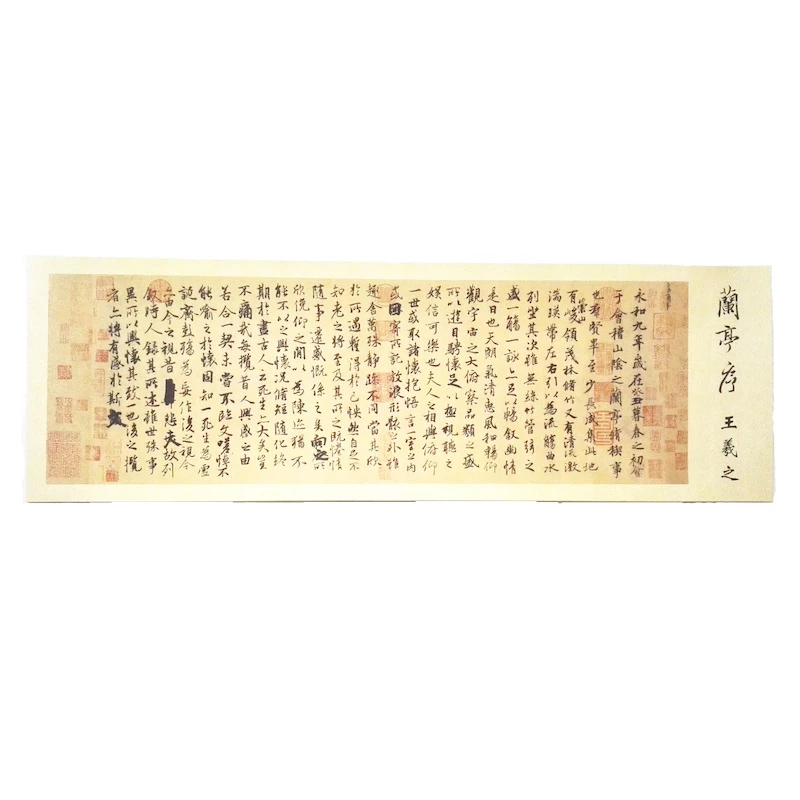 蘭亭序 王羲之
永和九年歲在癸丑暮春之初會
于會稽山陰之蘭亭脩禊事
也羣賢畢至少長咸集此地
有崇山峻領茂林脩竹又有清流激
湍暎帶左右引以為流觴曲水
列坐其次雖無絲竹管弦之
盛一觴一詠亦足以暢敘幽情
是日也天朗氣清惠風和暢仰
觀宇宙之大俯察品類之盛
所以遊目騁懷足以極視聽之
娛信可樂也夫人之相與俯仰
一世或取諸懷抱悟言一室之內
或因寄所託放浪形骸之外雖
趣舍萬殊靜躁不同當其欣
於所遇蹔得於己快然自足不
知老之將至及其所之既惓情
隨事遷感慨係之矣向之所
欣俛仰之閒以為陳迹猶不
能不以之興懷況脩短隨化終
期於盡古人云死生亦大矣豈
不痛哉每攬昔人興感之由
若合一契未嘗不臨文嗟悼不
能喻之於懷固知一死生為虛
誕齊彭殤為妄作後之視今
亦由今之視昔悲夫故列
敘時人錄其所述雖世殊事
異所以興懷其致一也後之攬
者亦將有感於斯文